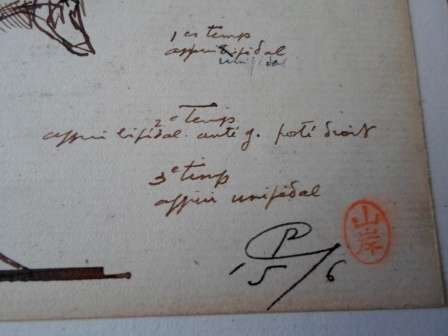 1er temp
appui bipédal
unipédal
2e temp
appui bipédal. anté g. posté droit
3e temp
appui unipédal
15/6
山岸